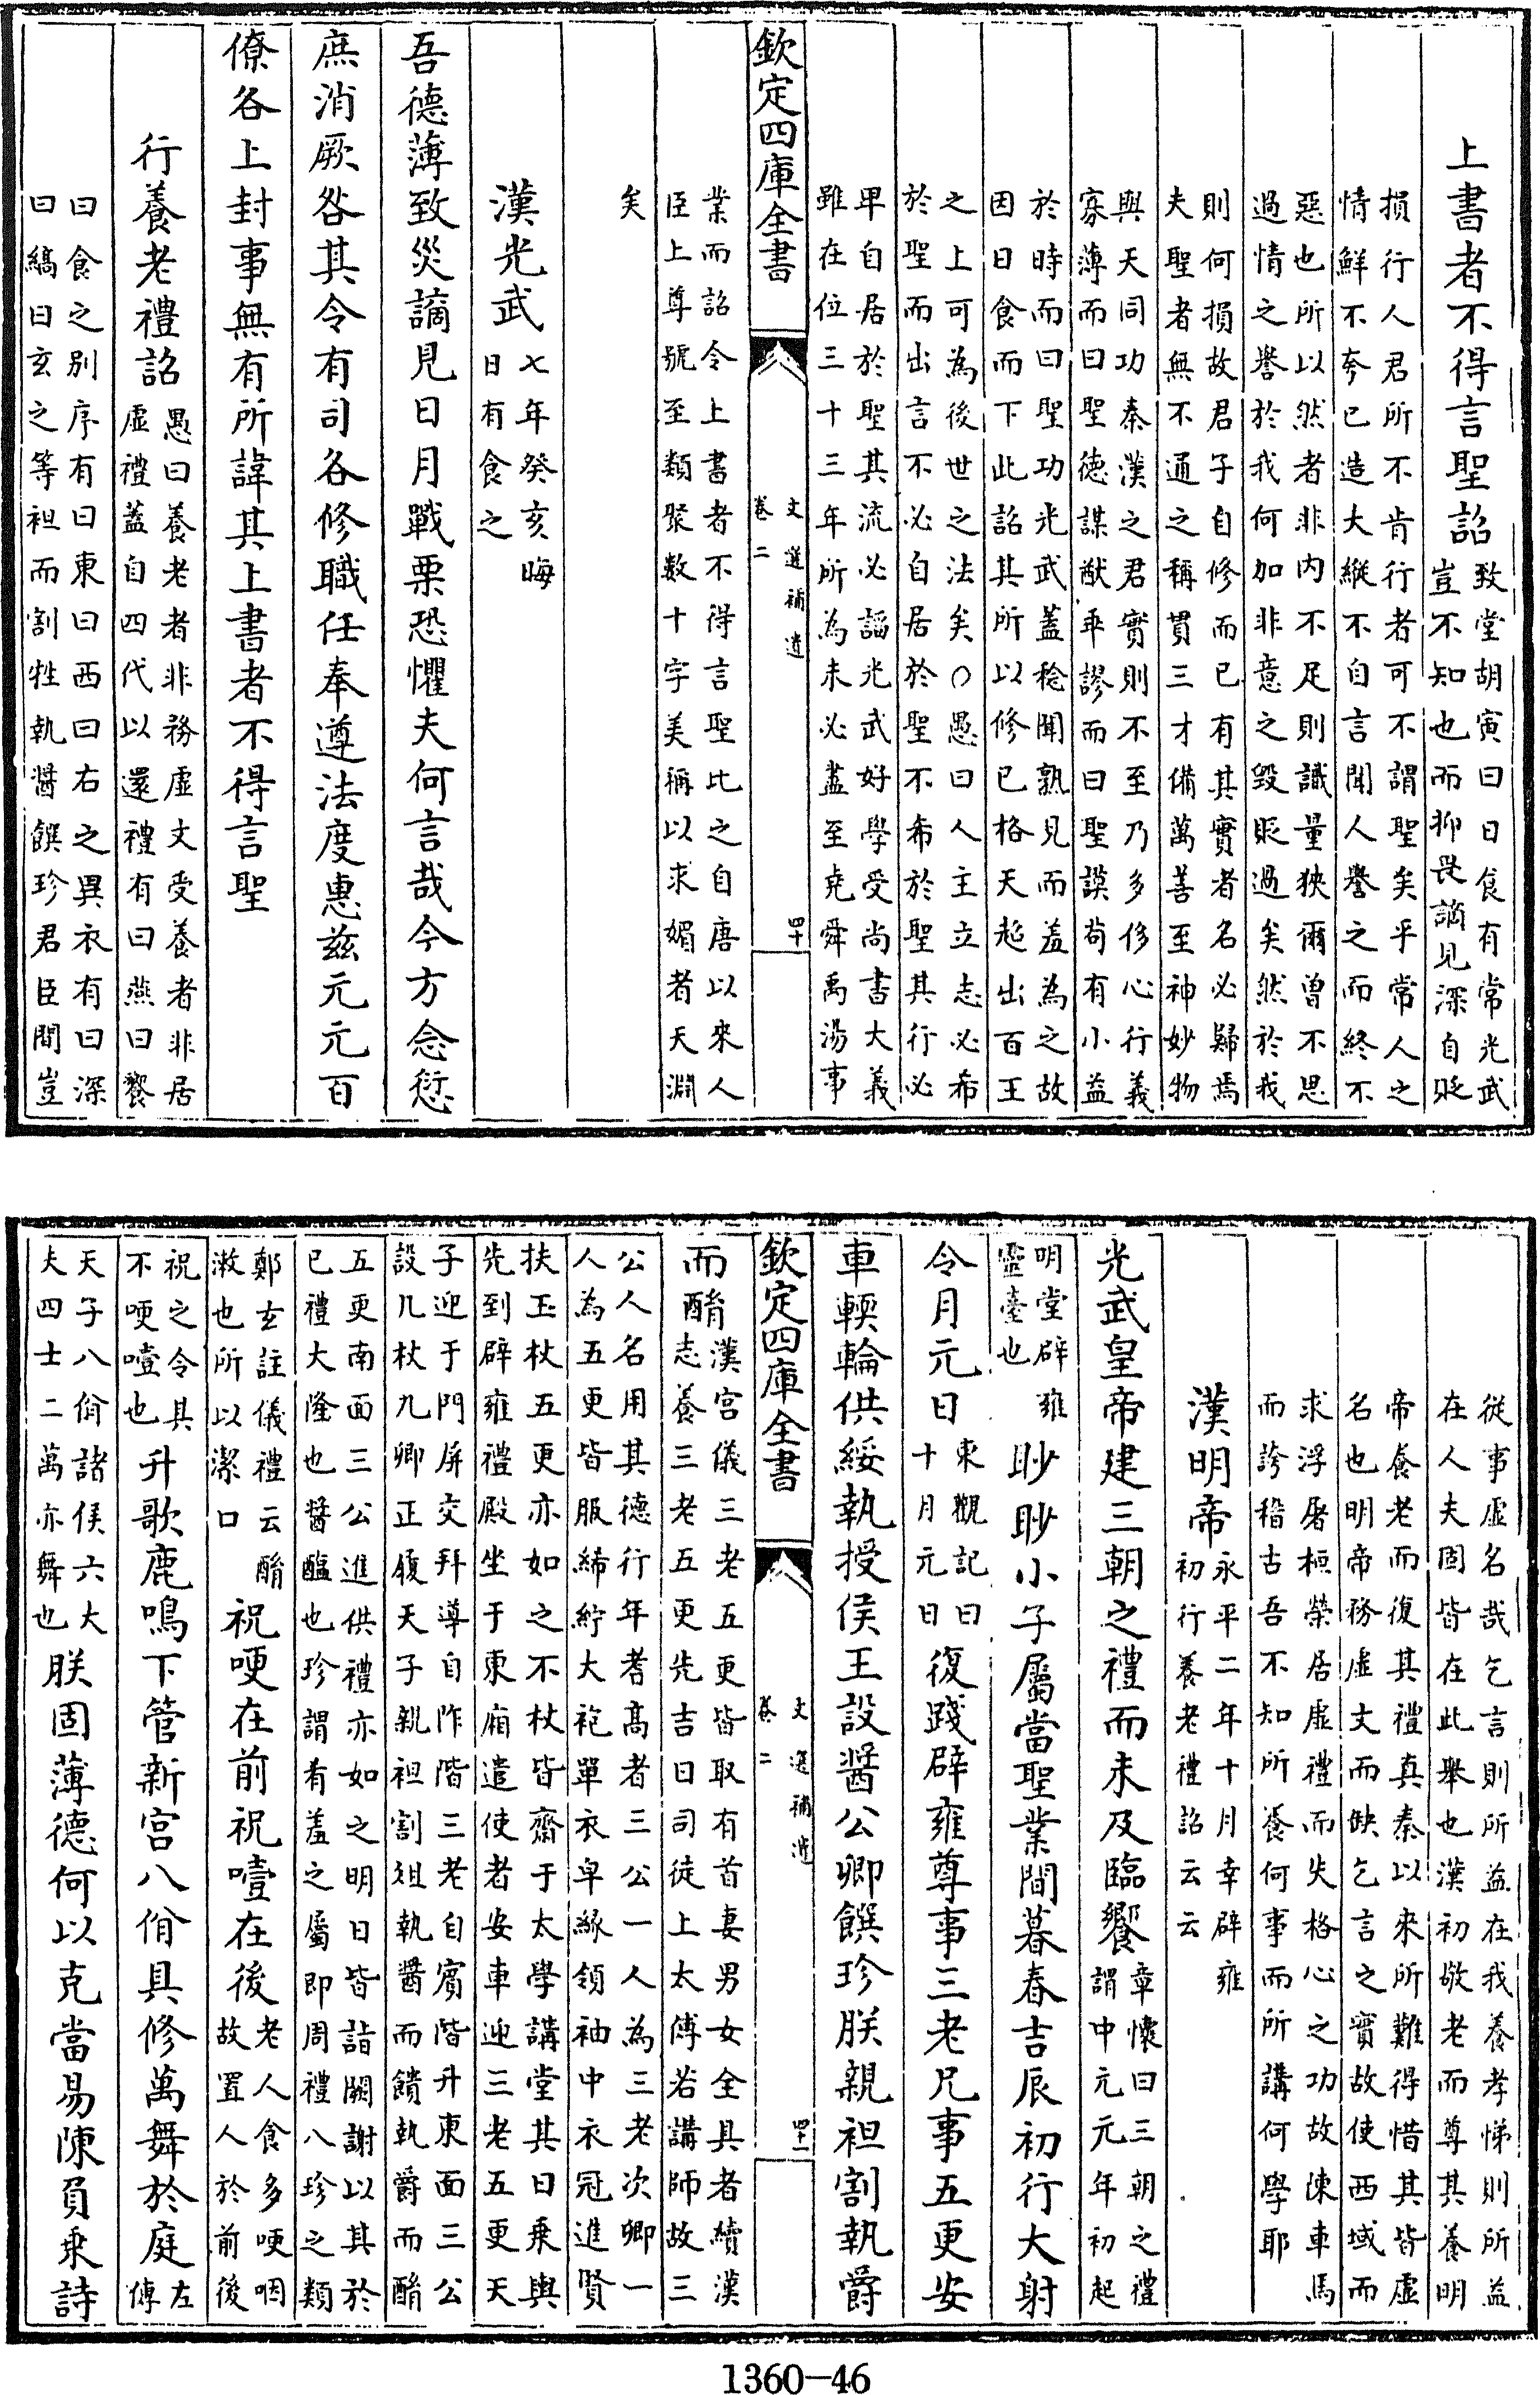 上書者不得言聖詔致堂胡寅曰日食有常光武
豈不知也而抑畏謫見深自貶
損行人君所不肯行者可不謂聖矣乎常人之
情鮮不夸已造大縱不自言聞人譽之而終不
惡也所以然者非内不足則識量狹爾曽不思
過情之譽於我何加非意之毀貶過矣然於我
則何損故君子自修而已有其實者名必歸焉
夫聖者無不通之稱貫三才備萬善至神妙物
與天同功秦漢之君實則不至乃多侈心行義
寡薄而曰聖徳謀猷乖謬而曰聖謨茍有小益
於時而曰聖功光武蓋稔聞熟見而羞為之故
因日食而下此詔其所以修已格天超出百王
之上可為後世之法矣○愚曰人主立志必希
於聖而出言不必自居於聖不希於聖其行必
卑自居於聖其流必謟光武好學受尚書大義
雖在位三十三年所為未必盡至堯舜禹湯事
欽定四庫全書
文選補遺
卷二
四十
業而詔令上書者不得言聖比之自唐以來人
臣上尊號至類聚數十字美稱以求媚者天淵
矣
漢光武七年癸亥晦
日有食之
吾德薄致災謫見日月戰栗恐懼夫何言哉今方念愆
庶消厥咎其令有司各修職任奉遵法度惠兹元元百
僚各上封事無有所諱其上書者不得言聖
行養老禮詔愚曰養老者非務虛文受養者非居
虛禮蓋自四代以還禮有曰燕曰饗
曰食之別序有曰東曰西曰右之異衣有曰深
曰縞曰玄之等袒而割牲執醬饌珍君臣間豈
從事虛名哉乞言則所益在我養孝悌則所益
在人夫固皆在此舉也漢初敬老而尊其養明
帝養老而復其禮真秦以來所難得惜其皆虛
名也明帝務虛文而缺乞言之實故使西域而
求浮屠桓榮居虛禮而失格心之功故陳車馬
而誇稽古吾不知所養何事而所講何學耶
漢明帝永平二年十月幸辟雍
初行養老禮詔云云
光武皇帝建三朝之禮而未及臨饗章懷曰三朝之禮
謂中元元年初起
明堂辟雍
靈臺也
眇眇小子屬當聖業間暮春吉辰初行大射
令月元日東觀記曰
十月元日
復踐辟雍尊事三老兄事五更安
車輭輪供綏執授侯王設醬公卿饌珍朕親袒割執爵
欽定四庫全書
文選補遺
卷二
四十一
而酳漢宫儀三老五更皆取有首妻男女全具者續漢
志養三老五更先吉日司徒上太傅若講師故三
公人名用其德行年耆高者三公一人為三老次卿一
人為五更皆服緆紵大袍單衣皁緣領袖中衣冠進賢
扶玉杖五更亦如之不杖皆齋于太學講堂其日乗輿
先到辟雍禮殿坐于東廂遣使者安車迎三老五更天
子迎于門屏交拜導自阼階三老自賓階升東面三公
設几杖九卿正履天子親袒割俎執醬而饋執爵而酳
五更南面三公進供禮亦如之明日皆詣闕謝以其於
已禮大隆也醬醢也珍謂肴羞之屬即周禮八珍之類
鄭玄註儀禮云酳
漱也所以潔口
祝哽在前祝噎在後老人食多哽咽
故置人於前後
祝之令其
不哽噎也
升歌鹿鳴下管新宫八佾具修萬舞於庭左
傳
天子八佾諸侯六大
夫四士二萬亦舞也
朕固薄德何以克當易陳負乗詩
1360-46